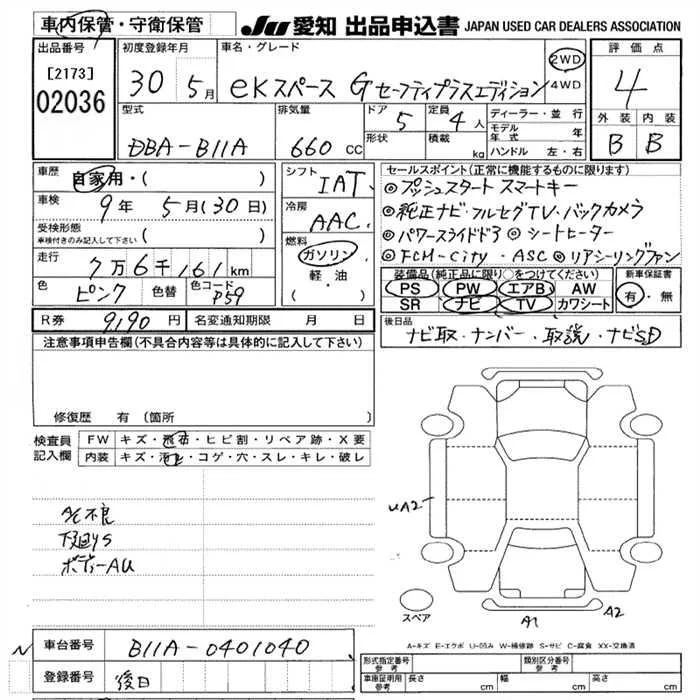 車内保管・守衛保管
JU 愛知 出品申込書 JAPAN USED CAR DEALERS ASSOCIATION
出品番号 初度登録年月 車名・グレード 評価点
[2173]
02036
30 5月 eKスペース G セーフティプラスエディション 2WD
4WD
4
型式 排気量 ドア 5 定員 4人 ディーラー・並行
外装 内装
形状 積載 kg モデル年式 年
DBA-B11A 660cc ハンドル 左・右
B B
車歴 自家用・( )
シフト IAT
セールスポイント(正常に機能するものに限ります)
◎プッシュスタート スマートキー
車検 9年 5月(30日)
冷房 AAC
◎純正ナビ・フルセグTV・バックカメラ
受検形態 ( )
車検付きのみ記入して下さい
◎パワースライドドア ◎シートヒーター
燃料 ガソリン
軽・油
◎FCM-City・ASC ◎リアシーリングファン
走行 7万6千161km
装備品(純正品に限り○をつけてください) 新車保証書
色 ピンク 色替 色コード P59
PS PW エアB AW
SR ナビ TV カワシート
有・無
R券 9190円 名変通知期限 月 日
後日品
ナビ取・ナンバー・取説・ナビSD
注意事項申告欄(不具合内容等は具体的に記入して下さい)
修復歴 有 (箇所
検査員記入欄
FW キズ・飛石・ヒビ割・リペア跡・X要
内装 キズ・汚れ・コゲ・穴・スレ・キレ・破レ
A/C不良
下廻りS
ボディーAU
UA2
スペア
A1
A2
A-キズ E-エクボ U-凹み W-補修跡 S-サビ C-腐食 XX-交換済
車台番号 B11A-0401040
登録番号 後日
形式指定番号 参考 類別区分番号 参考
車庫証明用 参考 長さ cm 幅 cm 高さ cm